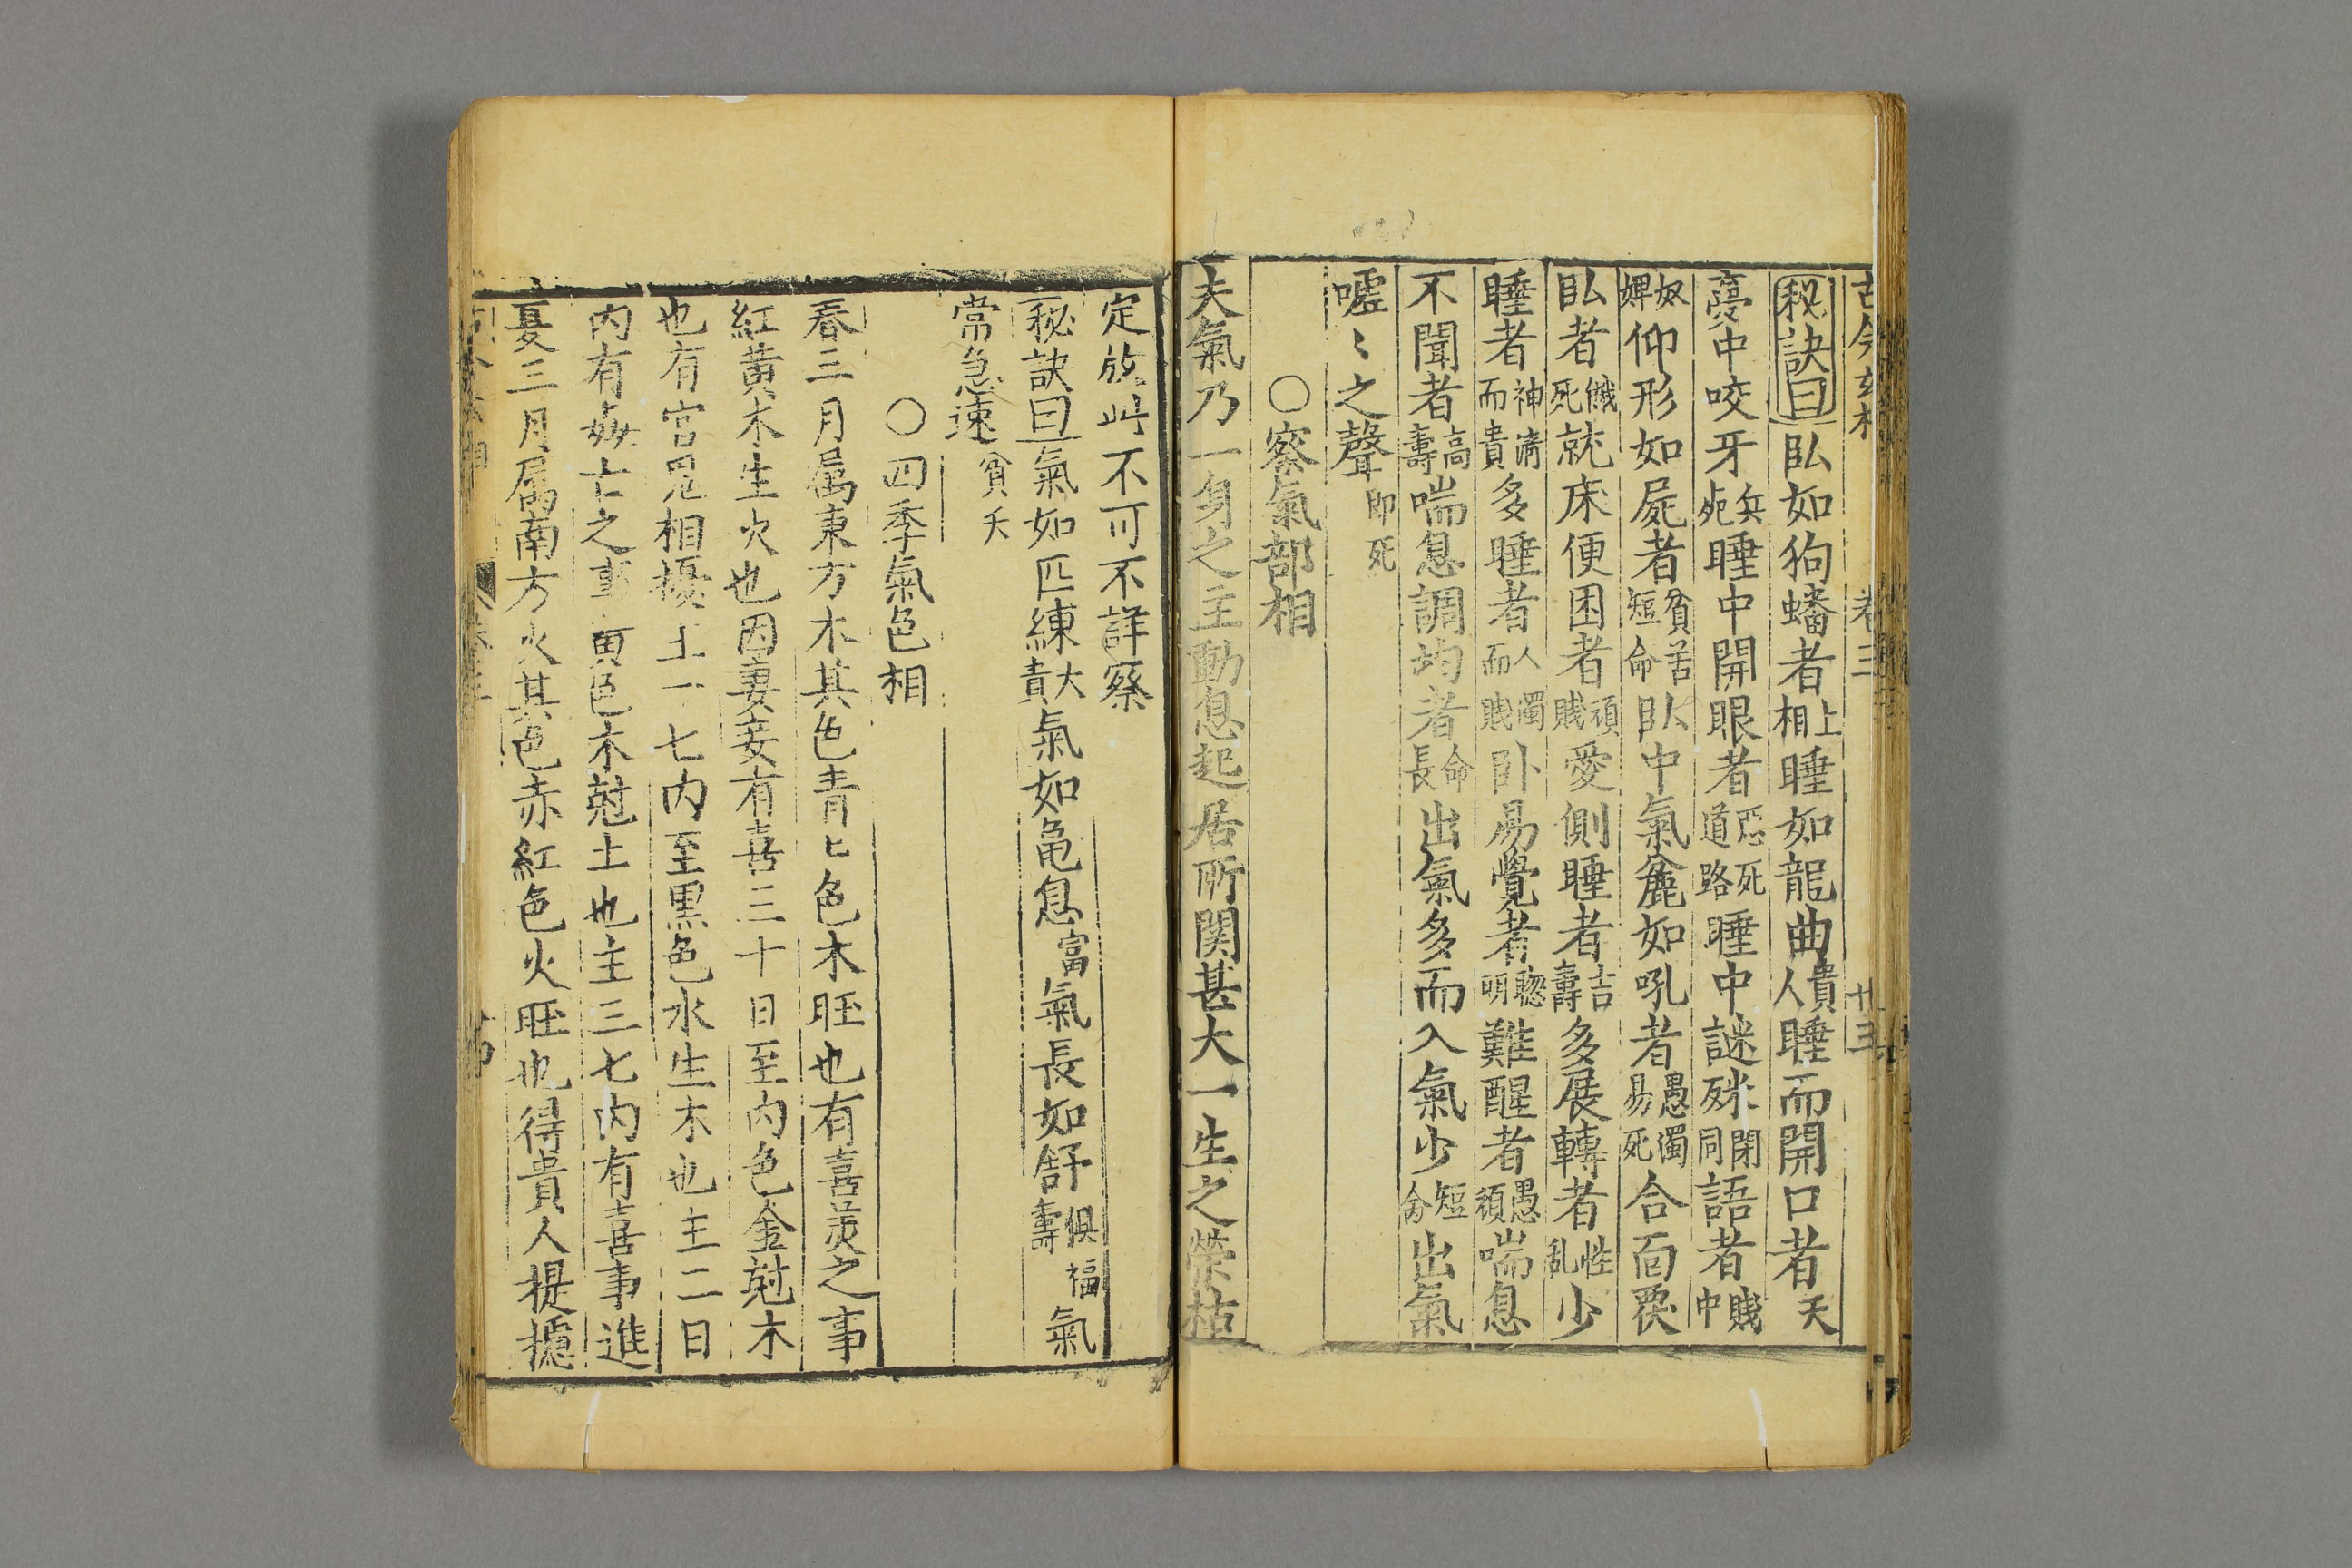 古今玄相 卷三 廿三
秘訣曰臥如狗蟠者上相睡如龍曲貴人睡而開口者夭
夢中咬牙兵死睡中開眼者惡死道路睡中謎殊閉同語者賤中
奴婢仰形如屍者貧苦短命臥中氣麁如吼者愚濁易死合面覆
臥者餓死就床便困者頑賤愛側睡者吉壽多展轉者性乱少
睡者神清而貴多睡者人濁而賤卧易覺者聰明難醒者愚頑喘息
不聞者高壽喘息調均者命長出氣多而入氣少短命出氣
噓〻之聲即死
○察氣部相
夫氣乃一身之主動息起居所関甚大一生之榮枯
定於此不可不詳察
秘訣曰氣如匹練大貴氣如龟息富氣長如舒俱福壽氣
常急速貧夭
○四季氣色相
春三月属東方木其色青〻色木旺也有喜美之事
紅黄木生火也因妻妾有喜三十日至内色金尅木
也有宮鬼相擾土一七内至黒色水生木也主二日
内有姦亡之事黄色木尅土也主三七内有喜事進
夏三月属南方火其色赤紅色火旺也得貴人提㨿